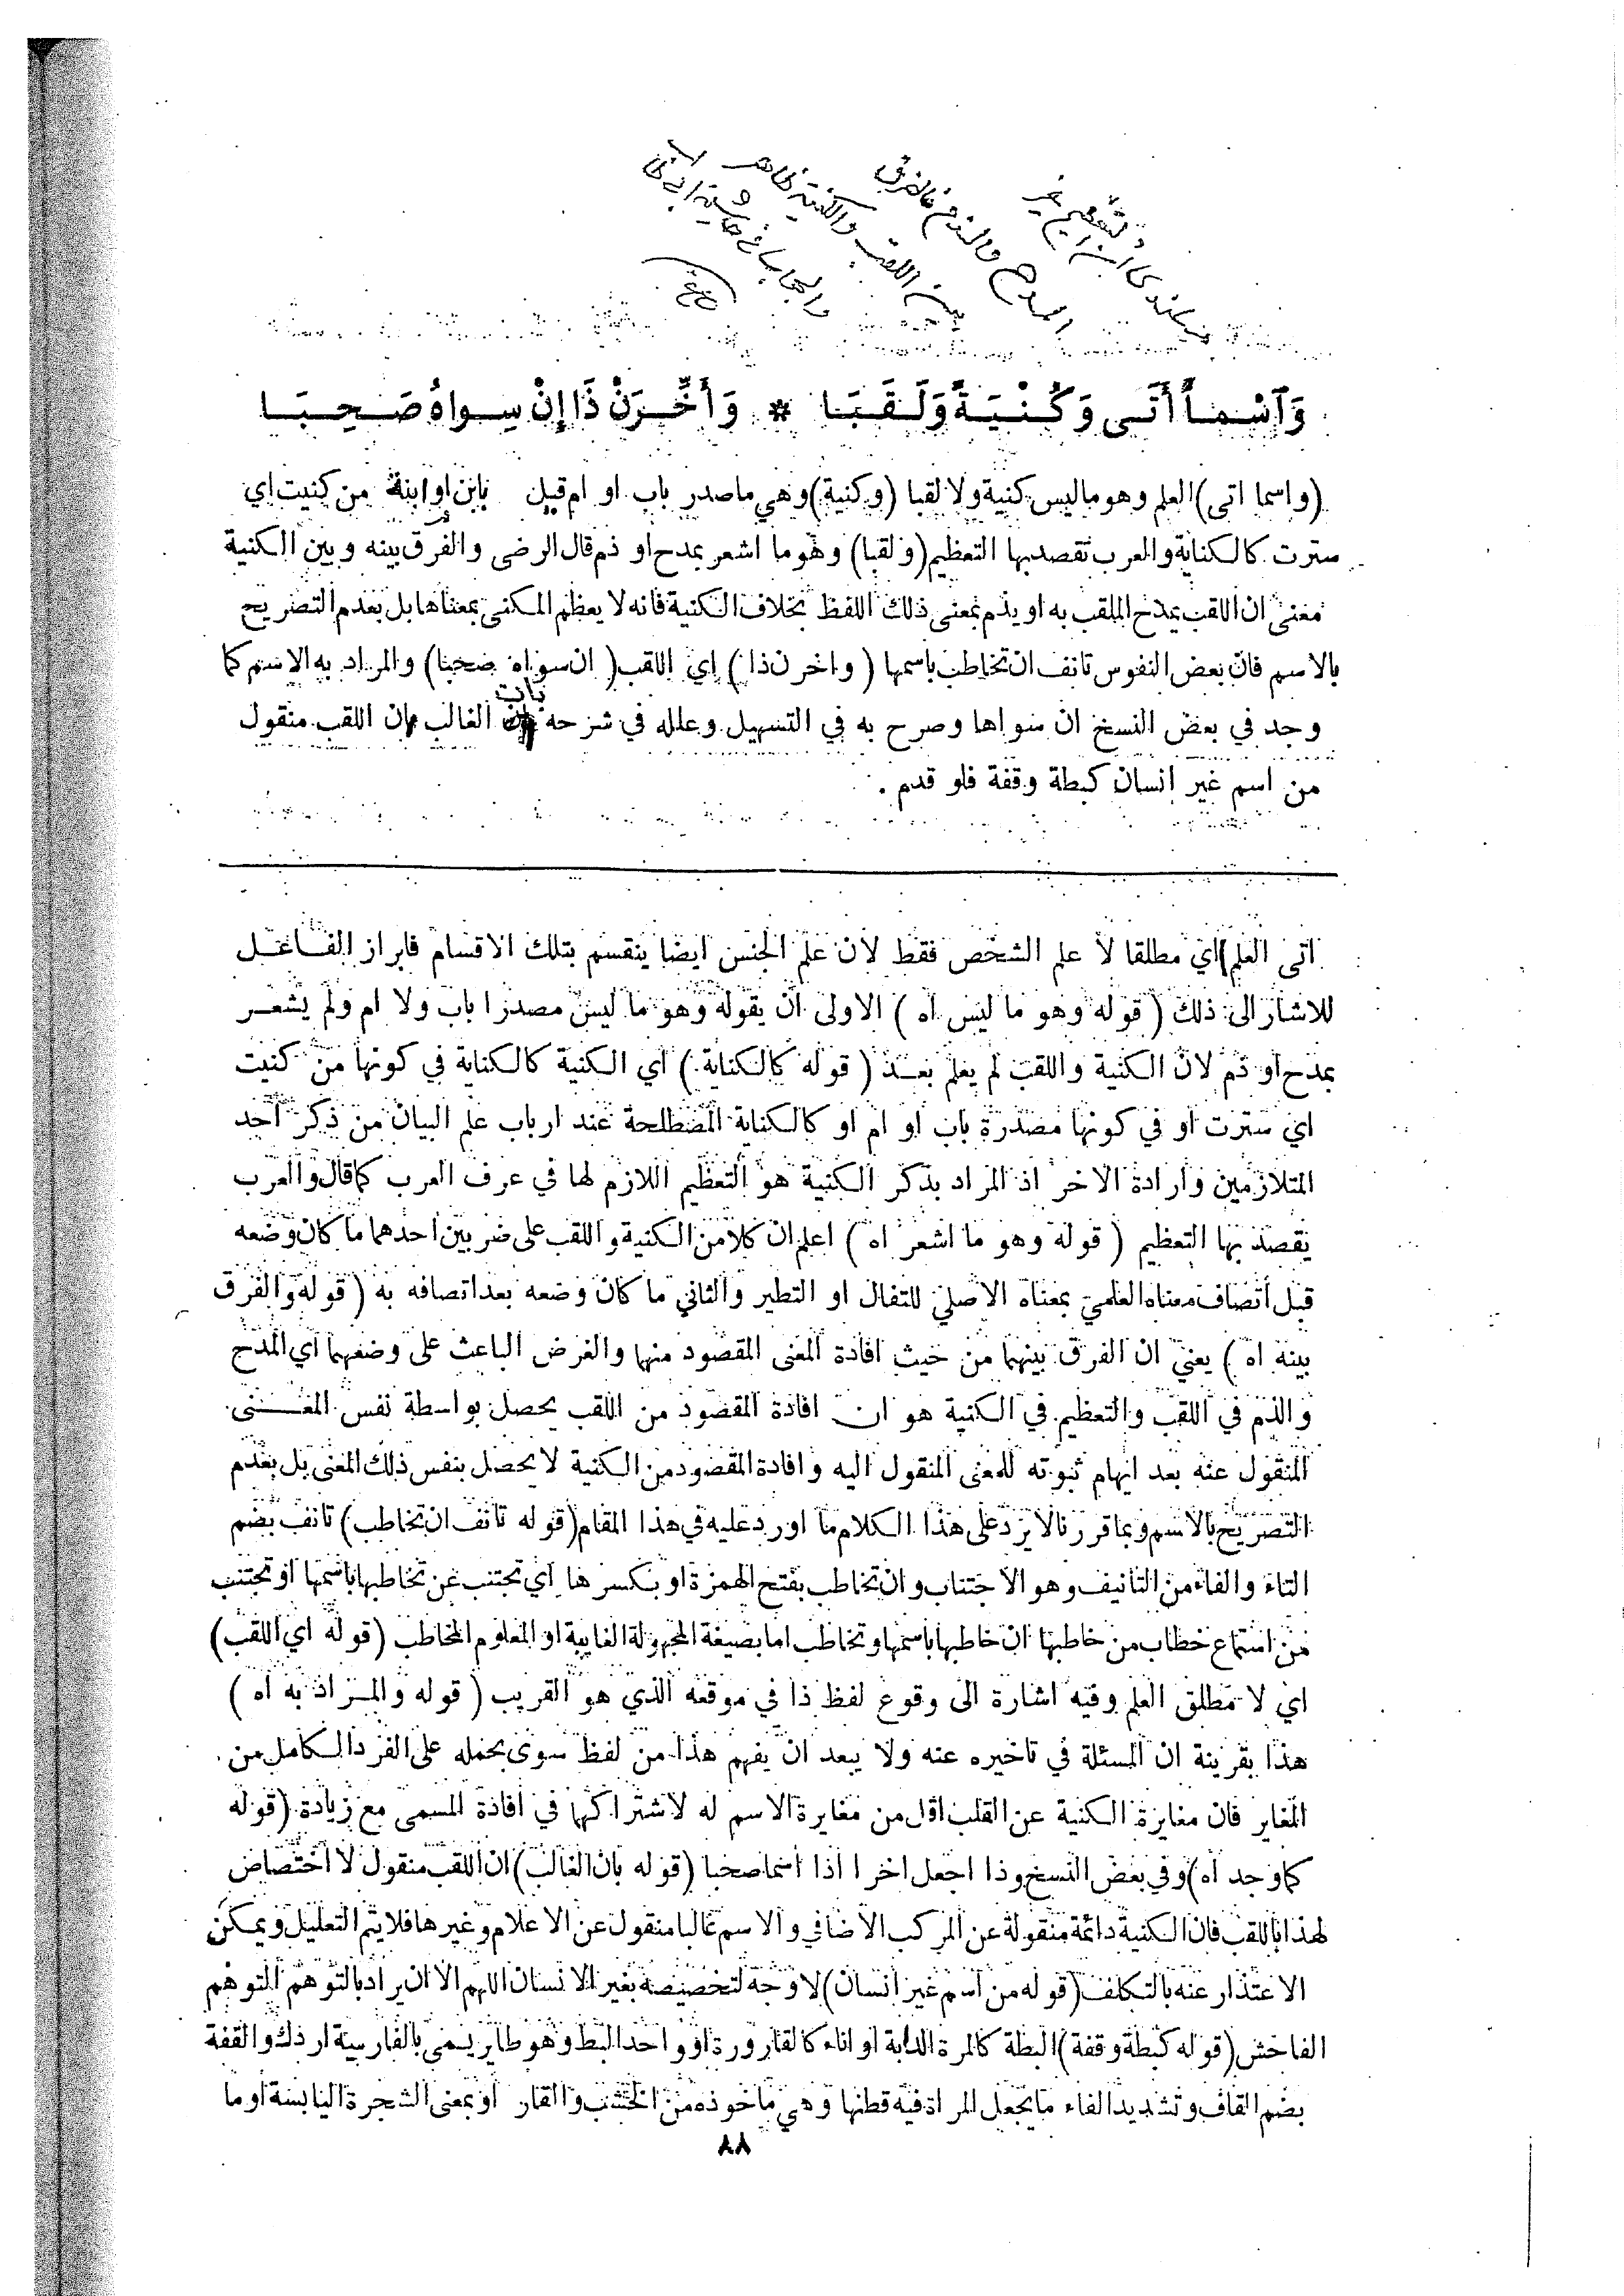 وَٱسْمـاً أَتَـى وَكُـنْـيَـةً وَلَـقَـبَـا * وَأَخِّـرَنْ ذَا إِنْ سِـواهُ صَـحِـبَـا
(واسما اتى) العلم وهو ما ليس كنية ولا لقبا (وكنية) وهي ما صدر باب او ام قيل بابن او ابنة من كنيت اي
سترت كالكناية والعرب تقصد بها التعظيم (ولقبا) وهو ما اشعر بمدح او ذم قال الرضى والفرق بينه وبين الكنية
معنى ان اللقب يمدح الملقب به او يذم بمعنى ذلك اللفظ بخلاف الكنية فانه لا يعظم المكنى بمعناها بل بعدم التصريح
بالاسم فان بعض النفوس تانف ان تخاطب باسمها (واخرن ذا) اي اللقب (ان سواه صحبا) والمراد به الاسم كما
وجد في بعض النسخ ان سواها وصرح به في التسهيل وعلله في شرحه بان الغالب ان اللقب منقول
من اسم غير إنسان كبطة وقفة فلو قدم .
اتى العلم) اي مطلقا لا علم الشخص فقط لان علم الجنس ايضا ينقسم بتلك الاقسام فابراز الفاعل
للاشار الى ذلك (قوله وهو ما ليس اه) الاولى ان يقوله وهو ما ليس مصدرا باب ولا ام ولم يشعر
بمدح او ذم لان الكنية واللقب لم يعلم بعد (قوله كالكناية) اي الكنية كالكناية في كونها من كنيت
اي سترت او في كونها مصدرة باب او ام او كالكناية المصطلحة عند ارباب علم البيان من ذكر احد
المتلازمين وارادة الاخر اذ المراد بذكر الكنية هو التعظيم اللازم لها في عرف العرب كما قال والعرب
يقصد بها التعظيم (قوله وهو ما اشعر اه) اعلم ان كلا من الكنية واللقب على ضربين احدهما ما كان وضعه
قبل اتصاف معناه العلمي بمعناه الاصلي للتفال او التطير والثاني ما كان وضعه بعد اتصافه به (قوله والفرق
بينه اه) يعني ان الفرق بينهما من حيث افادة المعنى المقصود منها والغرض الباعث على وضعهما اي المدح
والذم في اللقب والتعظيم في الكنية هو ان افادة المقصود من اللقب يحصل بواسطة نفس المعنى
المنقول عنه بعد ايهام ثبوته للمعنى المنقول اليه وافادة المقصود من الكنية لا يحصل بنفس ذلك المعنى بل بعدم
التصريح بالاسم وبما قررنا لا يرد على هذا الكلام ما اورد عليه في هذا المقام (قوله تانف ان تخاطب) تانف بضم
التاء والفاء من التانيف وهو الاجتناب وان تخاطب بفتح الهمزة او بكسرها اي تجتنب عن تخاطبها باسمها او تجتنب
من استماع خطاب من خاطبها ان خاطبها باسمها وتخاطب اما بصيغة المجهولة الغايبة او المعلوم المخاطب (قوله اي اللقب)
اي لا مطلق العلم وفيه اشارة الى وقوع لفظ ذا في موقعه الذي هو القريب (قوله والمراد به اه)
هذا بقرينة ان المسئلة في تاخيره عنه ولا يبعد ان يفهم هذا من لفظ سوى بحمله على الفرد الكامل من
المغاير فان مغايرة الكنية عن القلب اقل من مغايرة الاسم له لاشتراكهما في افادة المسمى مع زيادة (قوله
كما وجد اه) وفي بعض النسخ وذا اجعل اخرا اذا اسما صحبا (قوله بان الغالب) ان اللقب منقول لا اختصاص
لهذا باللقب فان الكنية دائمة منقولة عن المركب الاضافي والاسم غالبا منقول عن الاعلام وغيرها فلا يتم التعليل ويمكن
الاعتذار عنه بالتكلف (قوله من اسم غير انسان) لا وجه لتخصيصه بغير الانسان اللهم الا ان يراد بالتوهم التوهم
الفاحش (قوله كبطة وقفة) البطة كالمرة الدابة او اناء كالقارورة او واحد البط وهو طاير يسمى بالفارسية اردك والقفة
بضم القاف وتشديد الفاء ما يجعل المراة فيه قطنها وهي ماخوذه من الخشب والقار او بمعنى الشجرة اليابسة او ما
٨٨